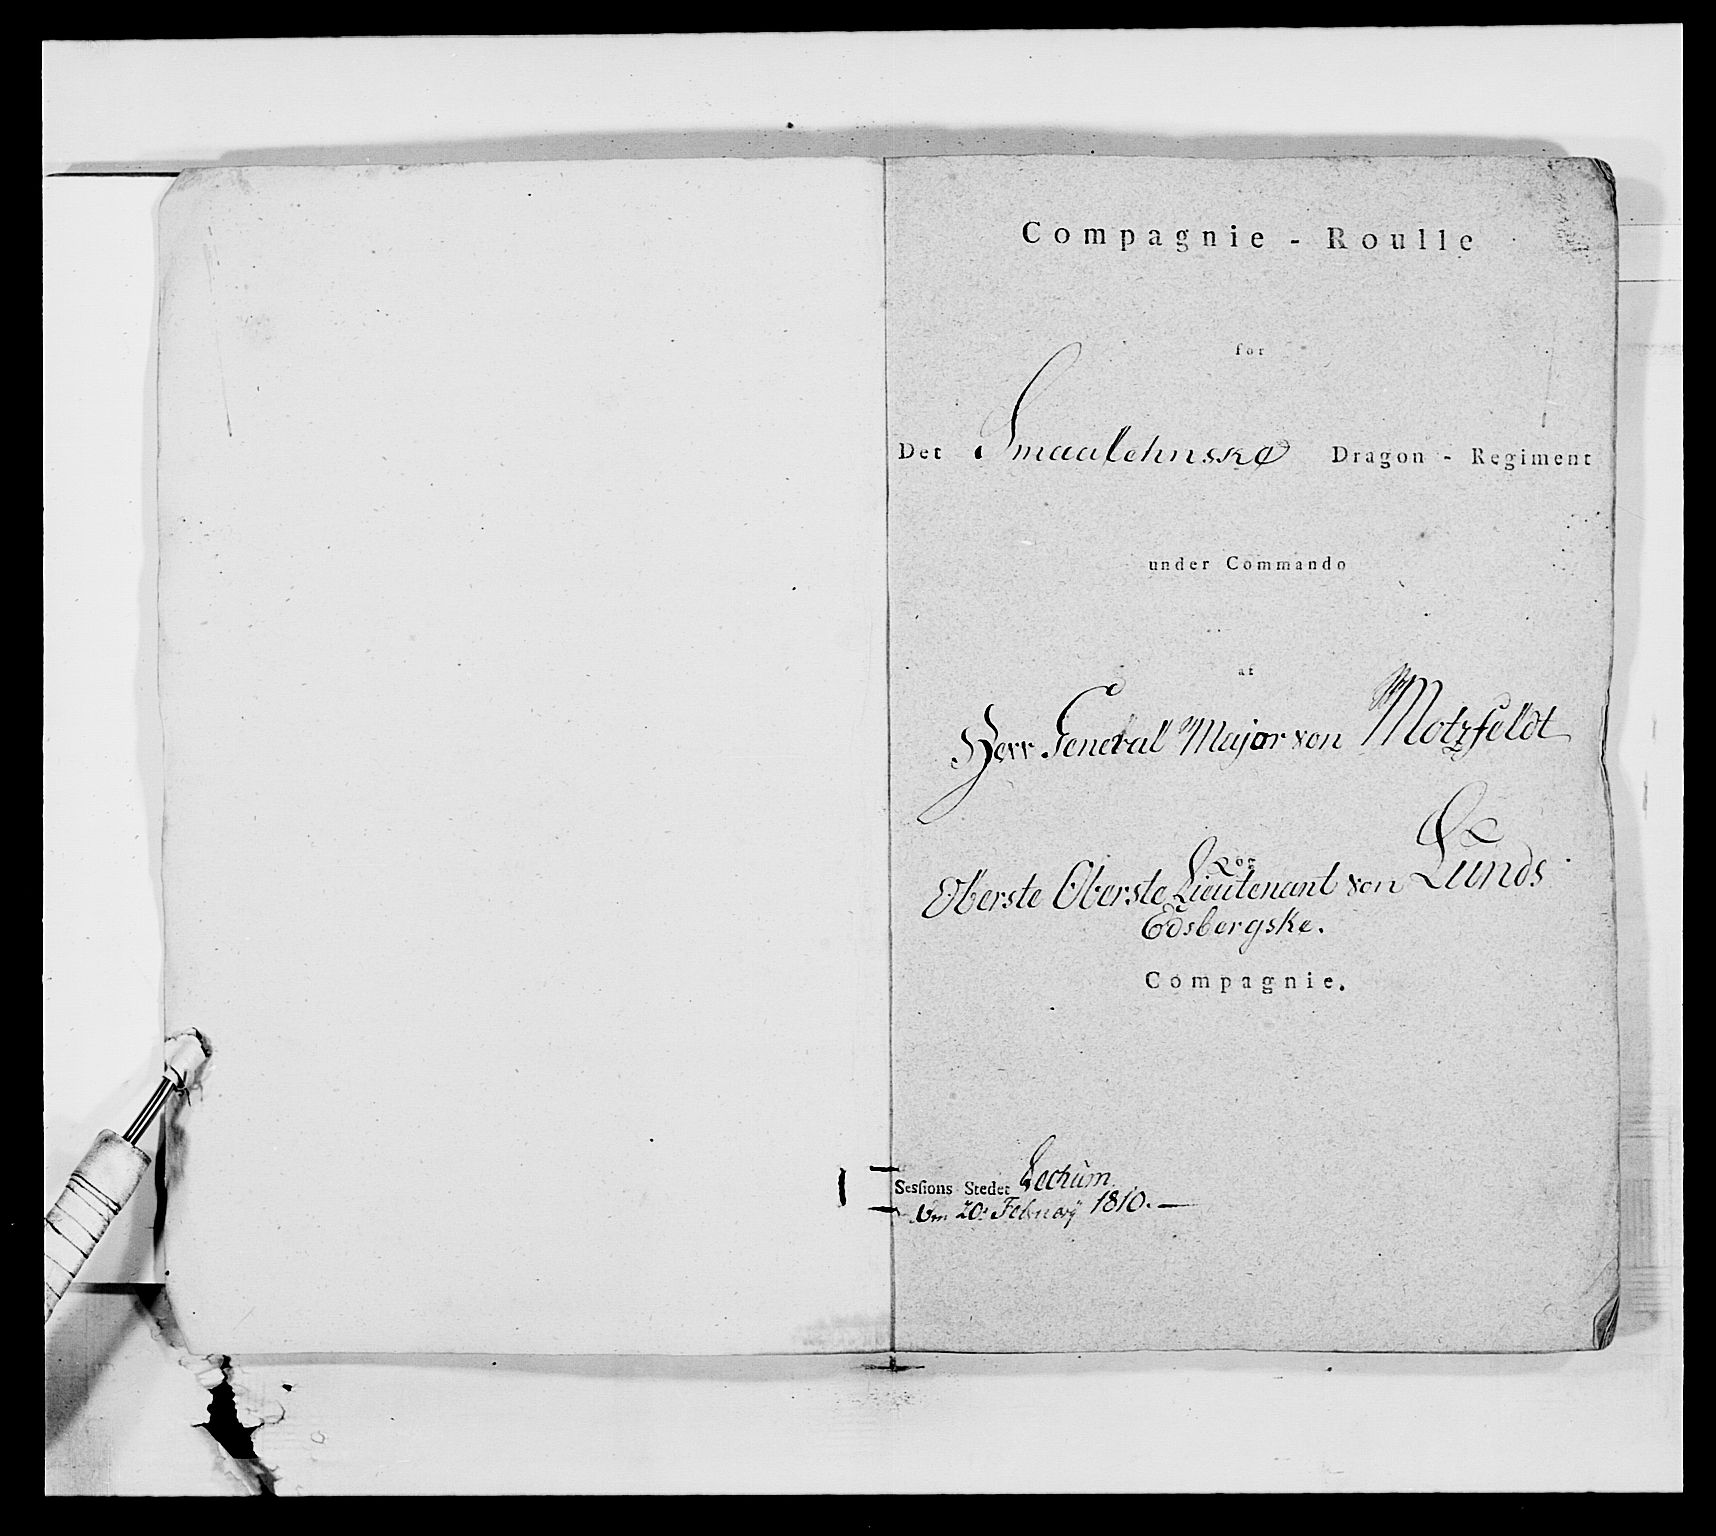 Compagnie - Roulle
for
Det Smaalehnske Dragon - Regiment
under Commando
af
Herr General Major von Motzfeldt
Oberste Oberste Lieutenant von Lunds
Edsbergske.
Compagnie.
Sessions Stedet
20. February 1810.